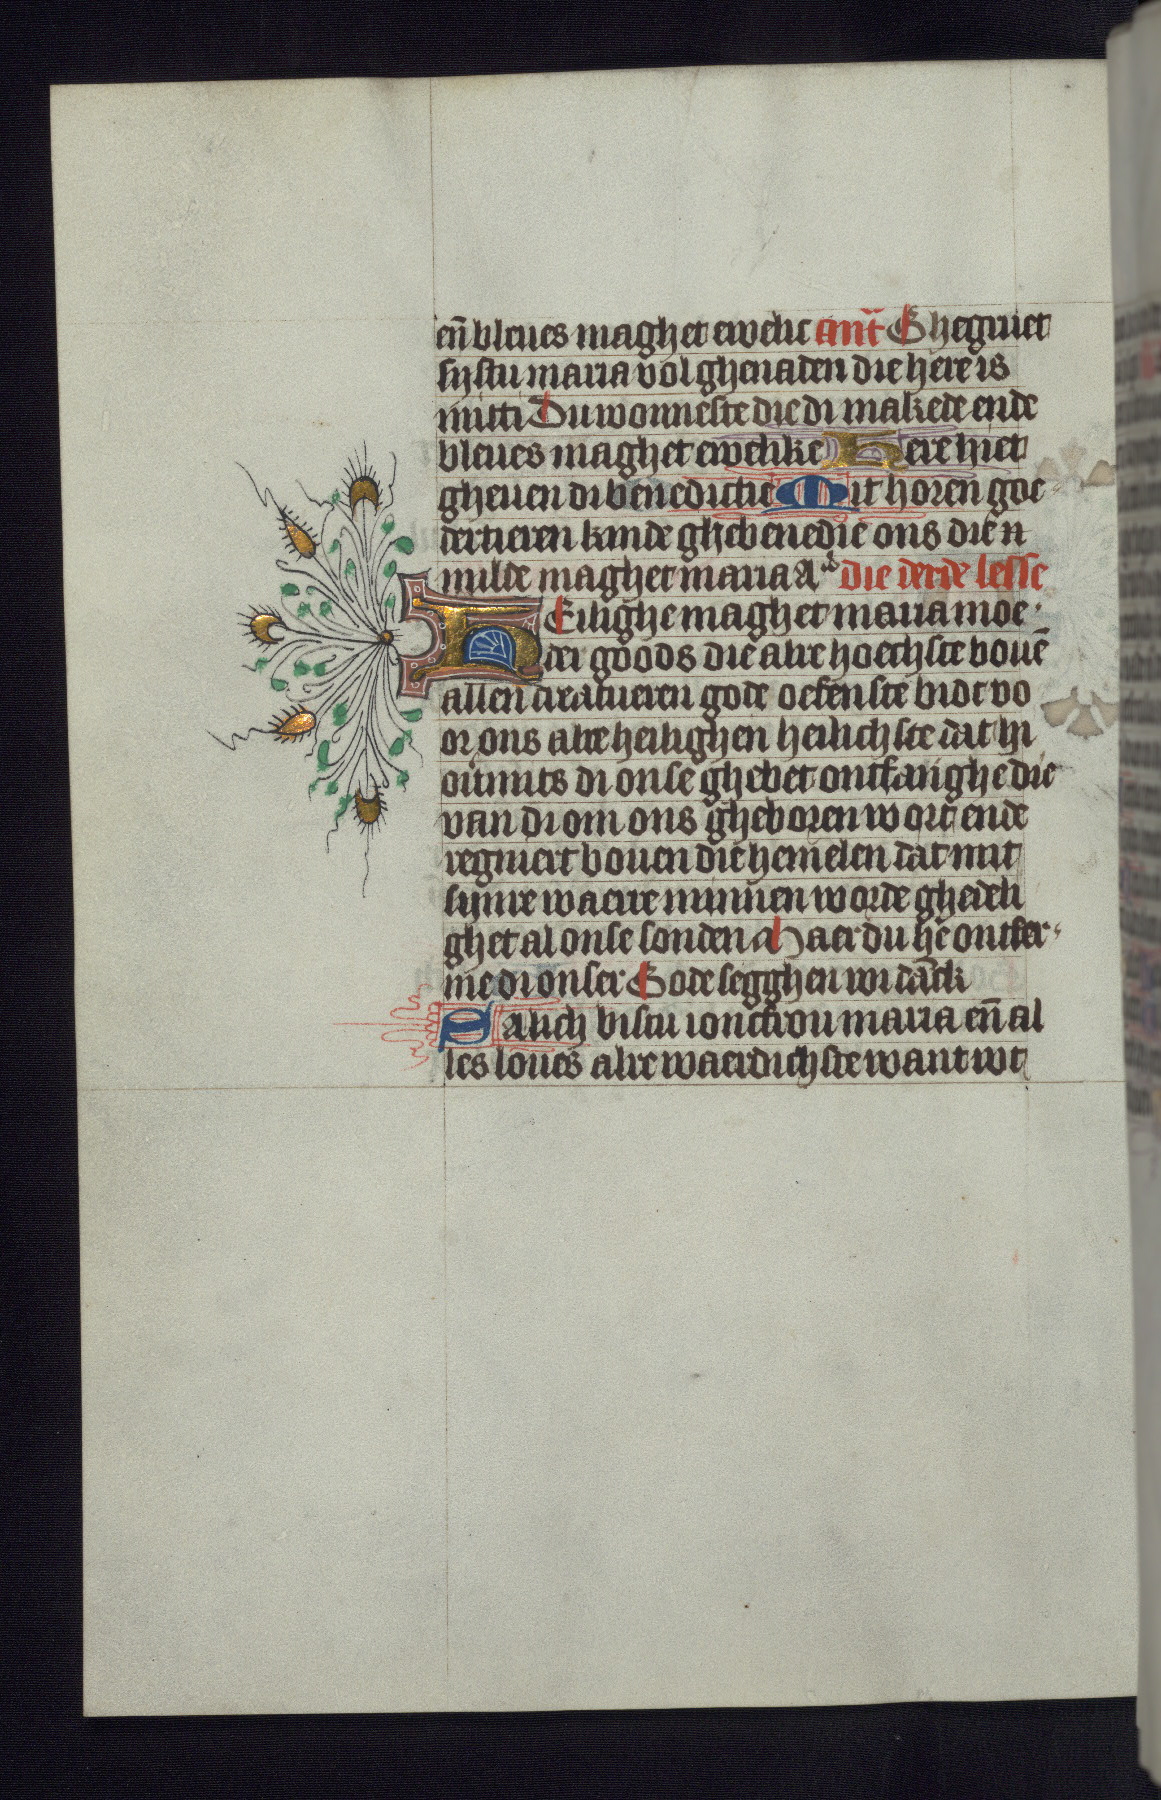 en̄ bleues maghet ewelic ant̄ Ghegruet
sijstu maria vol ghenaden die here is
mitti Du wonneste die di makede ende
bleues maghet ewelike Here hiet
gheuen di benedictie Mit horen goe
dertieren kinde ghebenedie ons die n
milde maghet maria A die derde lesse
HEilighe maghet maria moe-
der goods die alre hoechste bouē
allen creatueren gode oefenste bidt vo
or ons alre heilighen heilichste dat hi
ouimits di onse ghebet ontfanghe die
van di om ons gheboren wort ende
regniert bouen die hemelen dat mit
sijnre waerre minnen worde ghedeli
ghet al onse sonden Maer du he ontfer-
me di onser Gode segghen wi danck
Salich bistu ioncfrou maria en̄ al
les loues alre waerdichste want wt